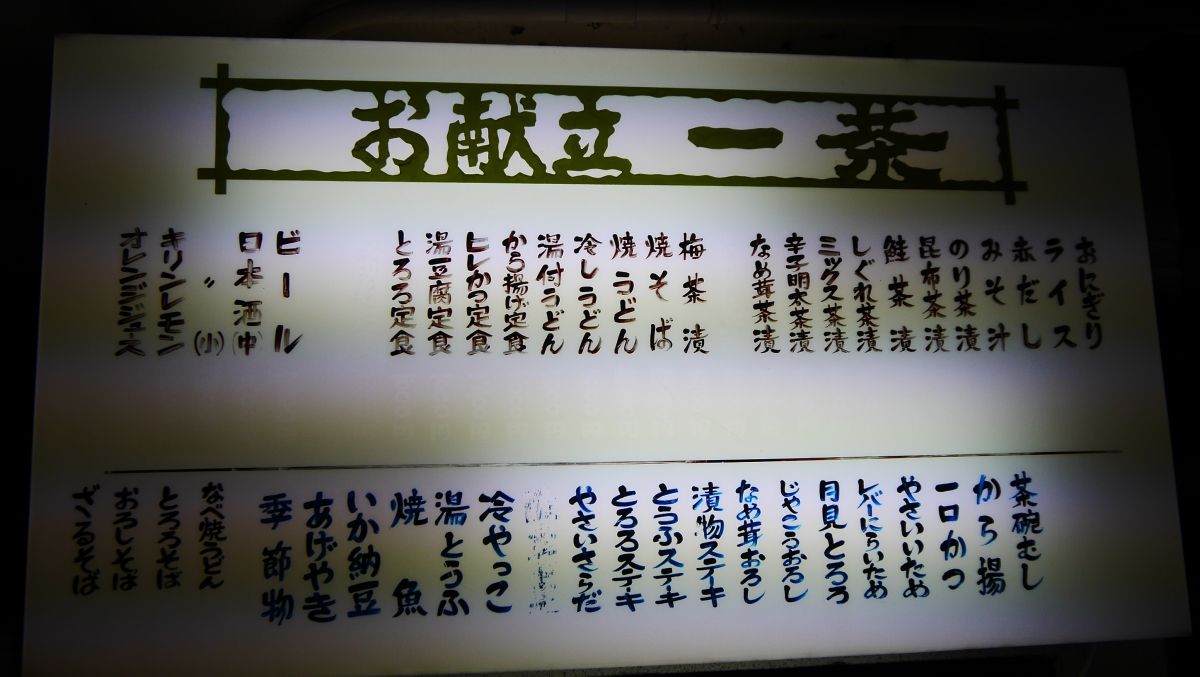 お献立 一茶
おにぎり
ライス
赤だし
みそ汁
のり茶漬
昆布茶漬
鮭茶漬
しぐれ茶漬
ミックス茶漬
辛子明太茶漬
なめ茸茶漬
梅茶漬
焼そば
焼うどん
冷しうどん
湯付うどん
から揚げ定食
ヒレかつ定食
湯豆腐定食
とろろ定食
ビール
日本酒(中)
〃(小)
キリンレモン
オレンジジュース
茶碗むし
から揚
一口かつ
やさいいため
レバーにらいため
月見とろろ
じゃこうおろし
なめ茸おろし
漬物ステイキ
とうふステーキ
とろろステーキ
やさいさらだ
冷やっこ
湯とうふ
焼魚
いか納豆
あげやき
季節物
なべ焼うどん
とろろそば
おろしそば
ざるそば